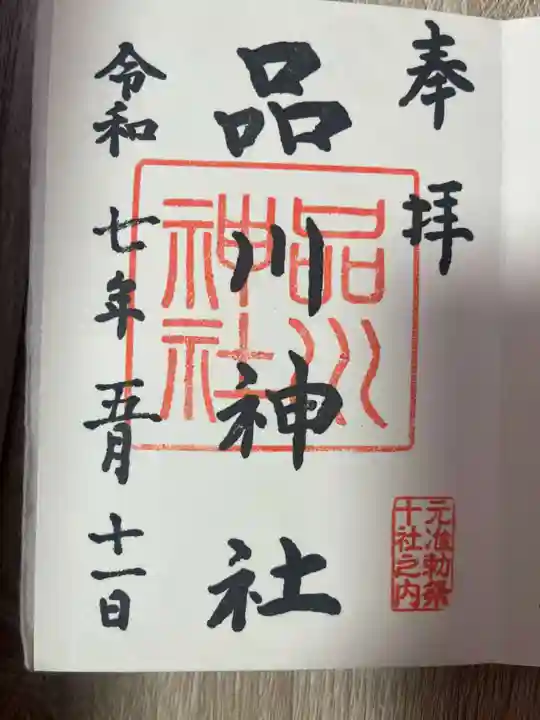 奉拝
品川神社
品川
神社
元准勅祭
十社之内
令和七年五月十一日